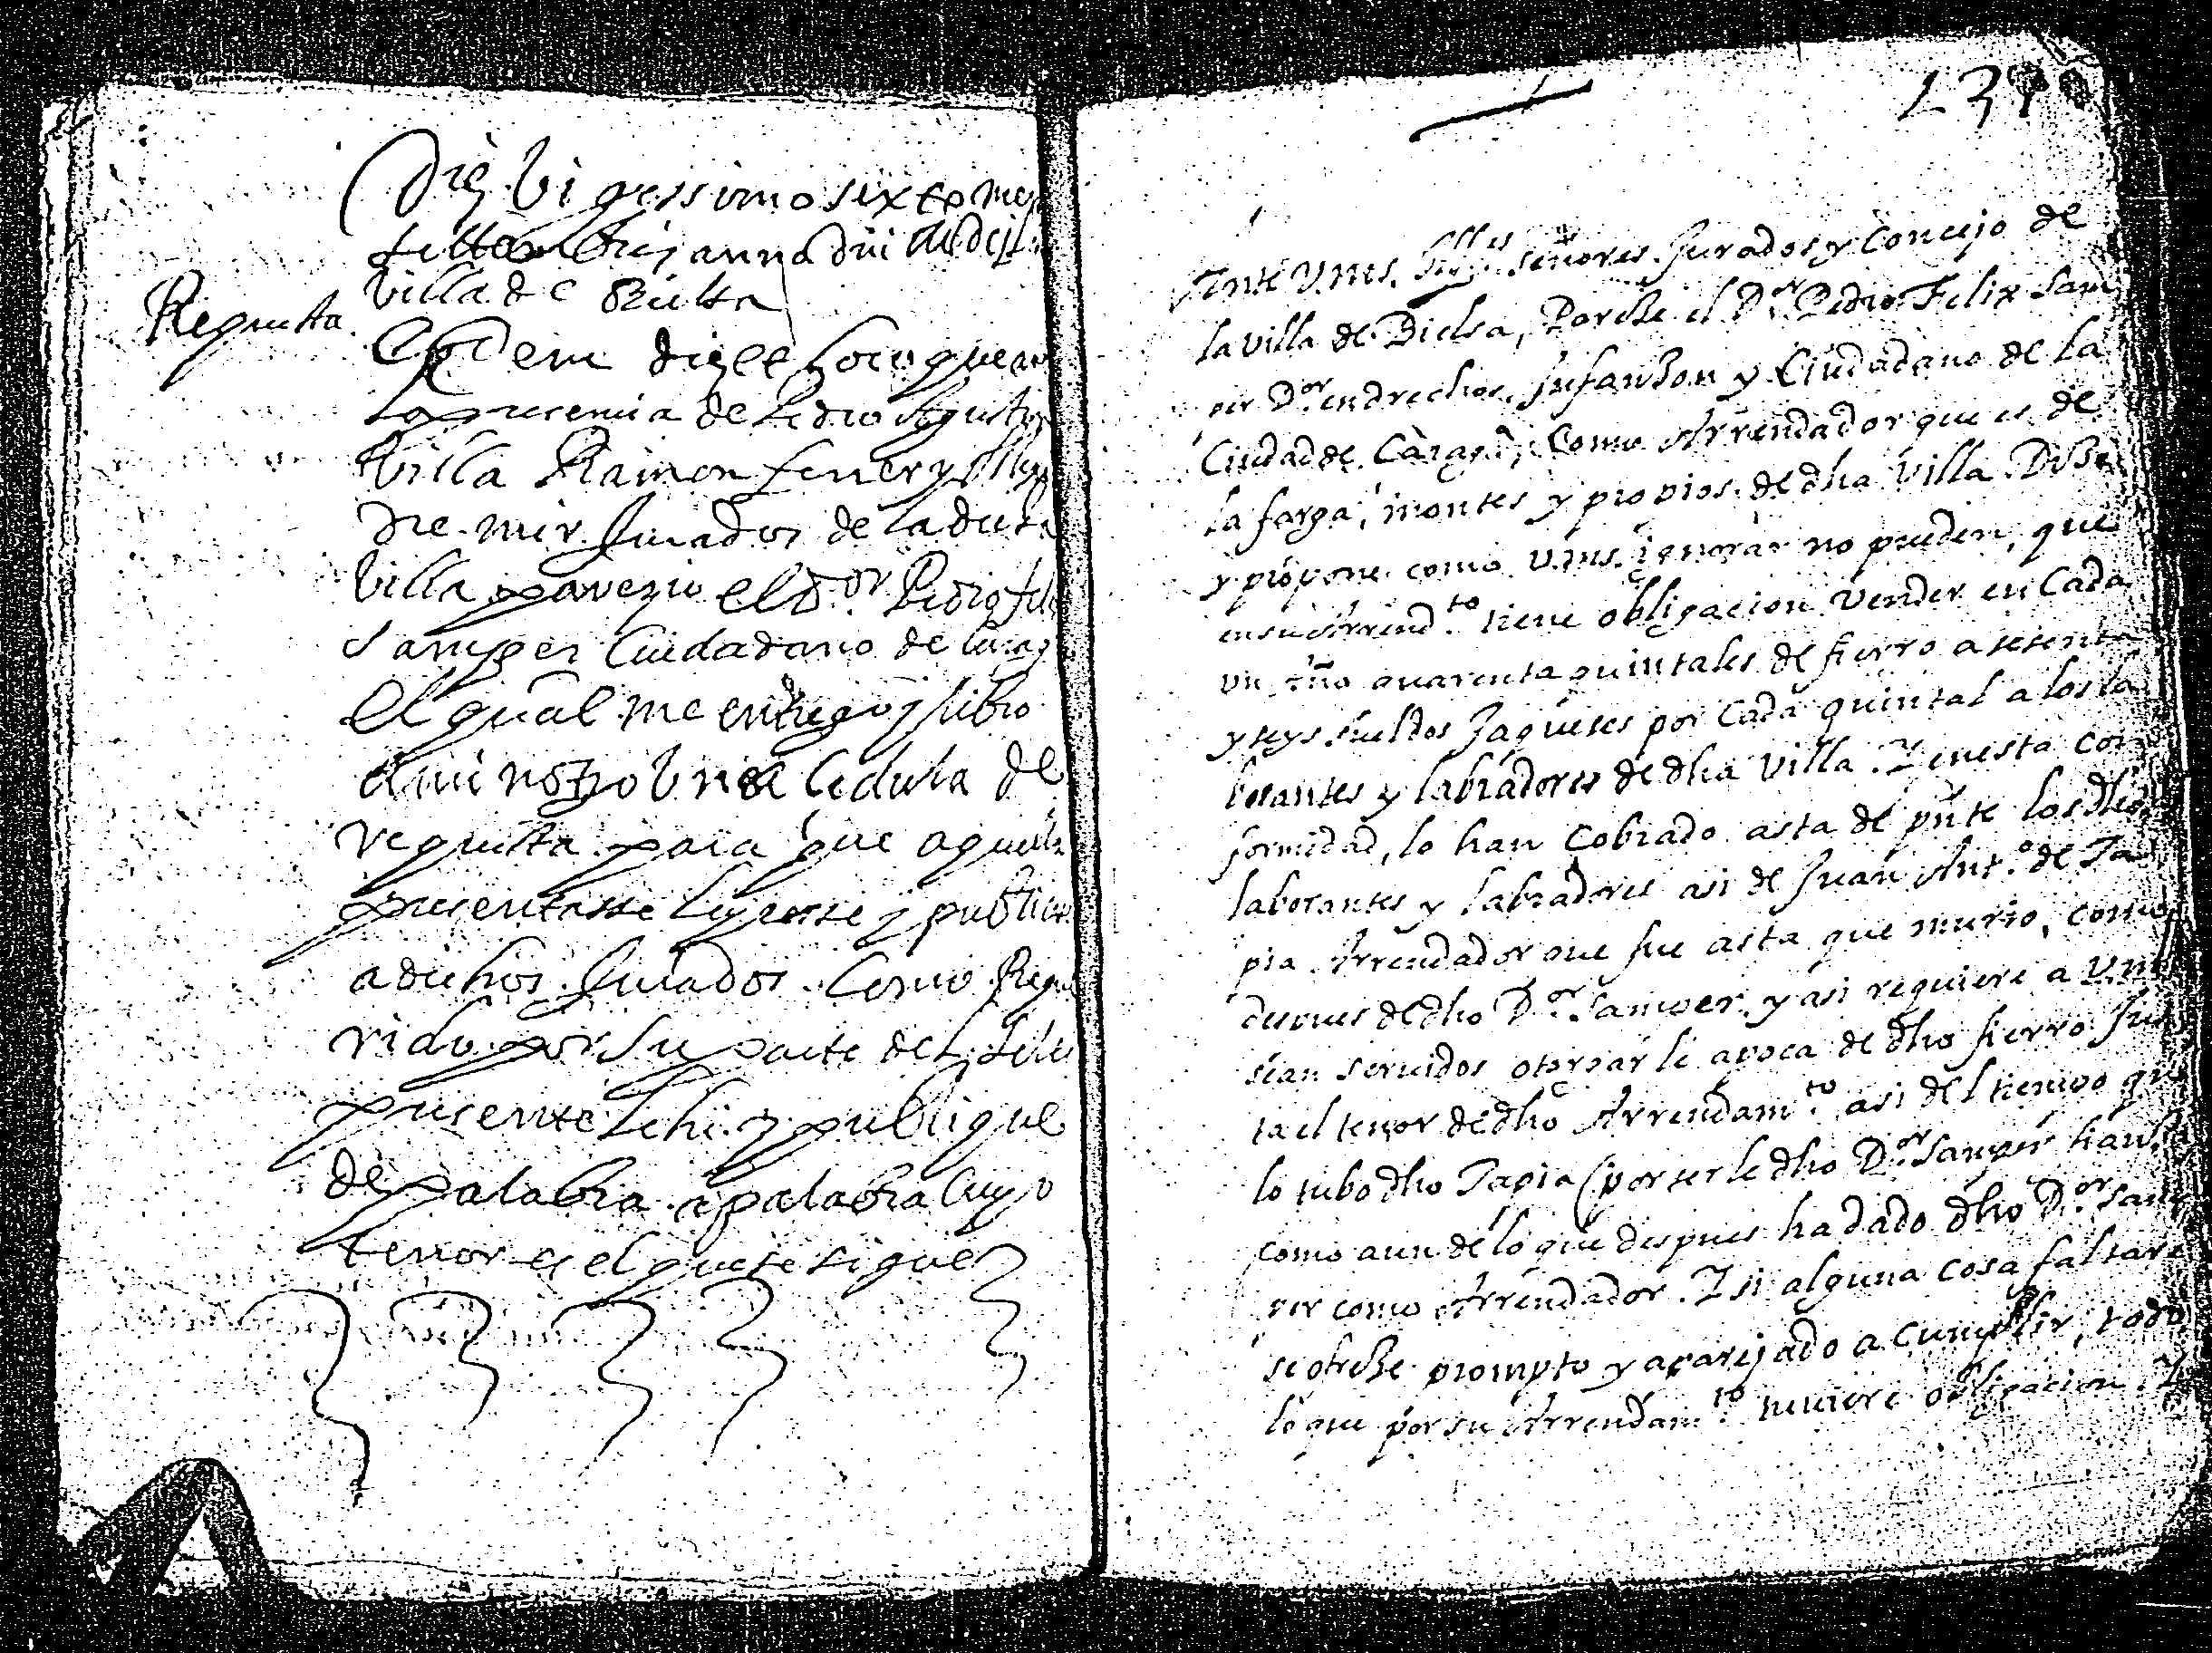 Die Vigessimo sexto me
settembris anno Dni MDCL
Villa de Bielsa
Requesta.
Eodem die et loco que an
la presencia de Pedro Agustin
Villa Ramon ferrer y
dre mir Jurados de la dicha
Villa parezio el D.or Pedro feli
Samper Ciudadano de Carag
el qual me entrego y libro
a mi notto Una Cedula de
requesta para que aquella
presentasse leyesse y publica
a dichos Jurados Como Reque
rido por su parte del
presente lehi y publique
de palabra a palabra Cuyo
tenor es el que se sigue
137
Ante Vms. Señores Jurados y Concejo de
la Villa de Bielsa, Pareze el D.or Pedro Felix Sam
per D.or en drechos, Infanzon y Ciudadano de la
Ciudad de Carag.a, Como Arrendador que es de
la farga, montes y propios de dha Villa Dize
y propone como Vms. ignorar no pueden, que
en su Arrend.to tiene obligacion Vender en Cada
un año quarenta quintales de fierro a sesenta
y seys sueldos Jaqueses por Cada quintal a los la
borantes y labradores de dha Villa. Y en esta con
formidad, lo han Cobrado asta de pnte los dhos
laborantes y labradores asi de Juan Ant.o de Ta
pia Arrendador que fue asta que murio, como
despues de dho D.or Samper. y asi requiere a Vms
sean seruidos otorgarle apoca de dho fierro Jus
ta el tenor de dho Arrendam.to asi del tiempo que
lo tubo dho Tapia (por ser le dho D.or Samper fianza
como aun de lo que despues ha dado dho D.or Sam
per como Arrendador. Y si alguna cosa faltare
se ofreze prompto y aparejado a Cumplir, todo
lo que por su Arrendam.to tuviere obligacion. Y